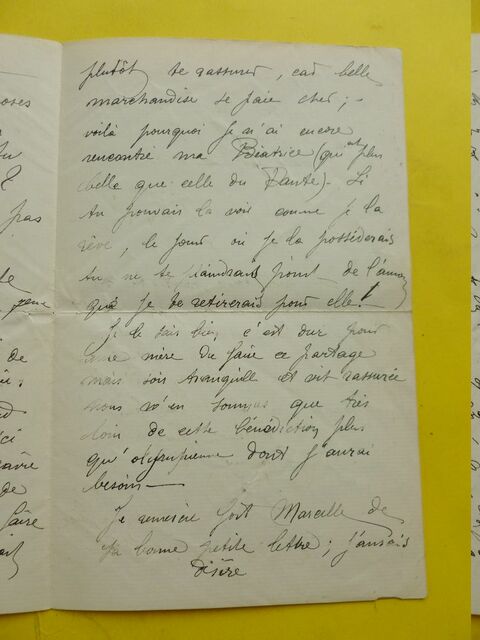 oses
tu
?
pas
te
peine
de
ici
de
faire
plutôt te rassurer, car belle
marchandise se paie cher ; -
voilà pourquoi je n'ai encore
rencontré ma Béatrice (qui est plus
belle que celle du Dante) - Si
tu pouvais la voir comme je la
rêve, le jour où je la posséderais
tu ne te plaindrais point de l'amour
que je te retirerais pour elle !
Je le sais bien c'est dur pour
une mère de faire ce partage
mais sois tranquille et vit rassurée
nous n'en sommes que très
loin de cette bénédiction plus
qu'olympienne dont j'aurai
besoin —
Je remercie fort Marcelle de
sa bonne petite lettre ; j'aurais
désiré